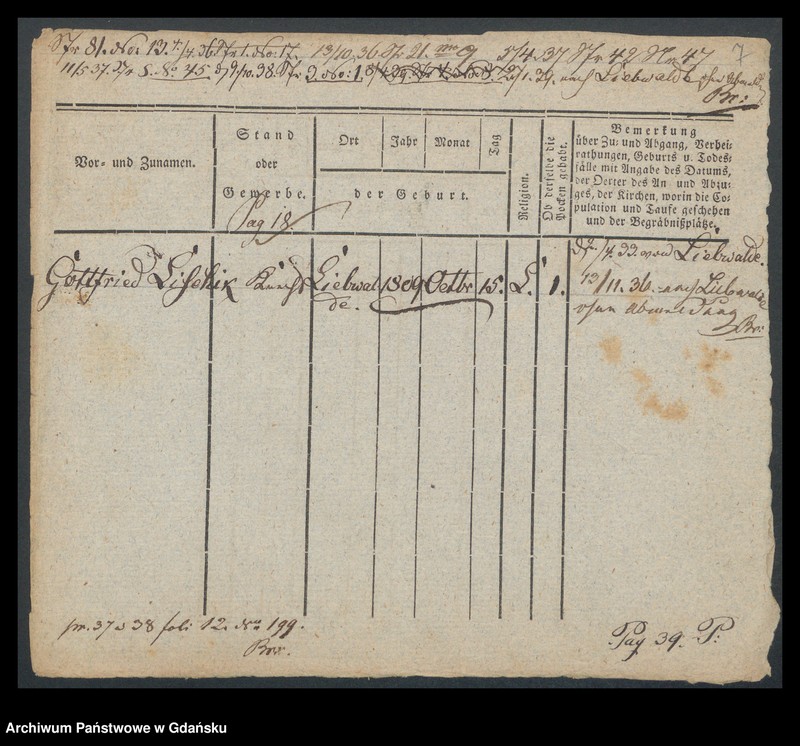 Str 81. No: 13. 7/4. 36 Str 1. No: 17. 13/10. 36 Str 21. No 9 5/4. 37 Str 42 Nr 47 7
11/5 37. Str 8. No 45 9/10. 38. Str 3 No: 1. 2/1. 39. nach Liebwalde
Br:
Vor- und Zunamen.
Stand
oder
Gewerbe.
Pag 18.
Ort
Jahr
Monat
Tag
der Geburt.
Religion.
Ob derselbe die
Pocken gehabt.
Bemerkung
über Zu- und Abgang, Verhei-
rathungen, Geburts u. Todes-
fälle mit Angabe des Datums,
der Oerter des An und Abzu-
ges, der Kirchen, worin die Co-
pulation und Taufe geschehen
und der Begräbnißplätze.
Gottfried Lischik Knecht Liebwal
de. 1809 Octbr 15. L. 1.
/4. 33 von Liebwalde.
13/11. 36. nach Liebwalde
ohne Abmeldung
Br:
pr. 37 u 38 foli 12. No 199.
Pag 39. P:
Archiwum Państwowe w Gdańsku